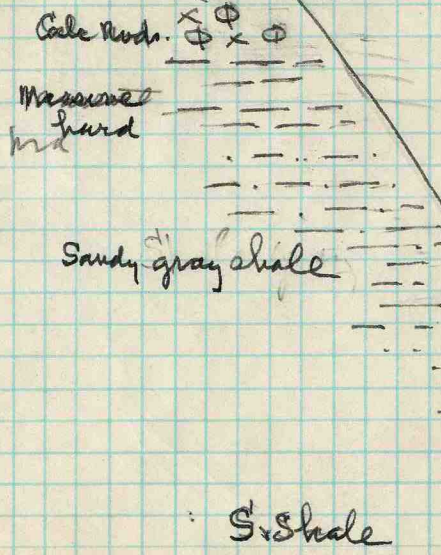 Calc Nods.
Massive
hard
Sandy gray shale
S. Shale